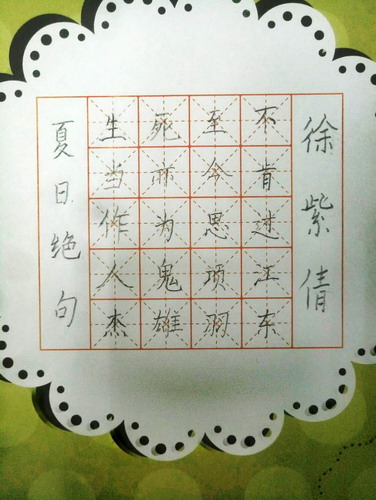 夏日绝句
生当作人杰
死亦为鬼雄
至今思项羽
不肯过江东
徐紫倩